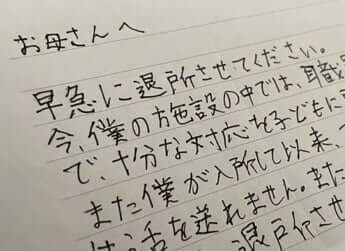 お母さんへ
早急に退所させてください。
今、僕の方施設の中では、職
で、十分な対応を子どもに
また僕が入所して以来、
活を送れません。また
退所させ